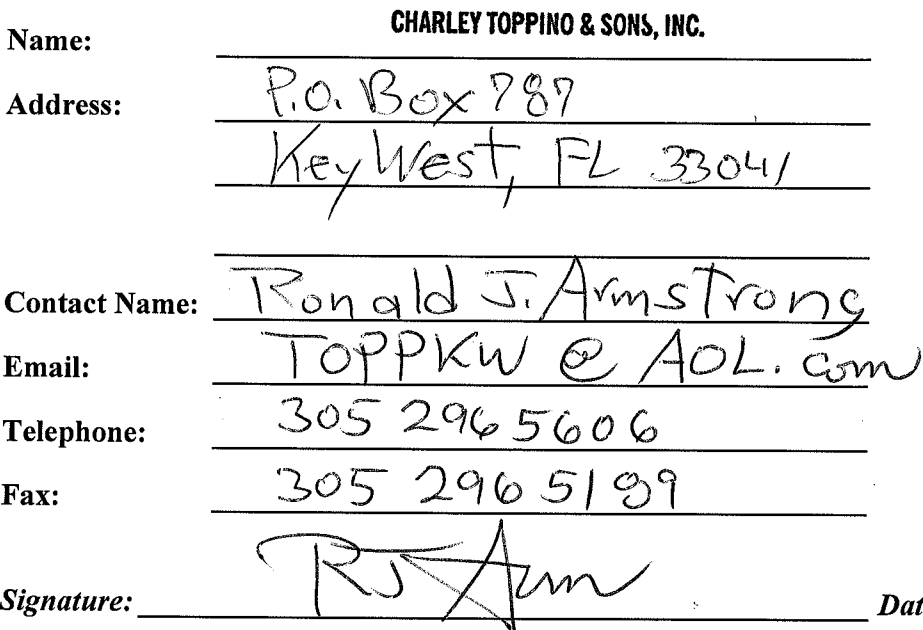 Name: CHARLEY TOPPINO & SONS, INC.
Address: P.O. Box 787
Key West, FL 33041
Contact Name: Ronald J. Armstrong
Email: TOPPKW @ AOL.com
Telephone: 305 296 5606
Fax: 305 296 5189
Signature: Dat